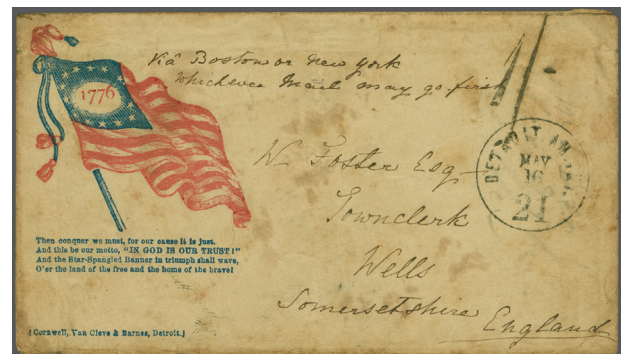 Via Boston or New York
Whichever Mail may go first
1776
W. Foster Esq
Townclerk
Wells
Somersetshire
England
DETROIT AM. PKT.
MAY
16
21
Then conquer we must, for our cause it is just.
And this be our motto, "IN GOD IS OUR TRUST!"
And the Star-Spangled Banner in triumph shall wave,
O'er the land of the free and the home of the brave!
[Cornwell, Van Cleve & Barnes, Detroit.]